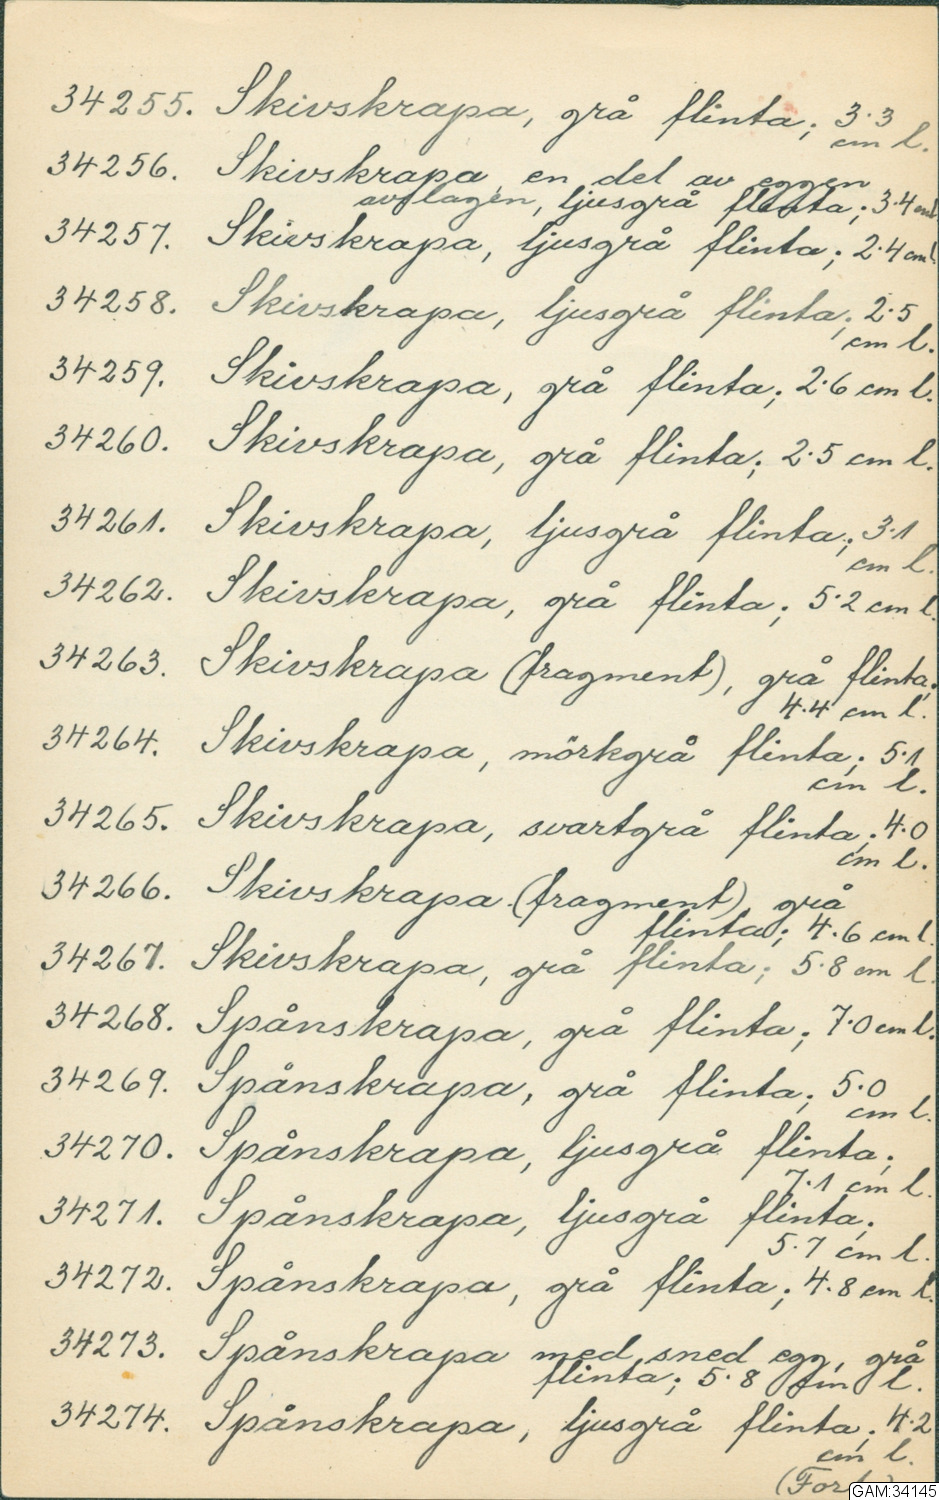 34255. Skivskrapa, grå flinta; 3·3
cm l.
34256. Skivskrapa, en del av eggen
avslagen, ljusgrå flinta; 3·4 cm l.
34257. Skivskrapa, ljusgrå flinta; 2·4 cm l.
34258. Skivskrapa, ljusgrå flinta; 2·5
cm l.
34259. Skivskrapa, grå flinta; 2·6 cm l.
34260. Skivskrapa, grå flinta; 2·5 cm l.
34261. Skivskrapa, ljusgrå flinta; 3·1
cm l.
34262. Skivskrapa, grå flinta; 5·2 cm l.
34263. Skivskrapa (fragment), grå flinta;
4·4 cm l.
34264. Skivskrapa, mörkgrå flinta; 5·1
cm l.
34265. Skivskrapa, svartgrå flinta; 4·0
cm l.
34266. Skivskrapa (fragment), grå
flinta; 4·6 cm l.
34267. Skivskrapa, grå flinta; 5·8 cm l.
34268. Spånskrapa, grå flinta; 7·0 cm l.
34269. Spånskrapa, grå flinta; 5·0
cm l.
34270. Spånskrapa, ljusgrå flinta;
7·1 cm l.
34271. Spånskrapa, ljusgrå flinta;
5·7 cm l.
34272. Spånskrapa, grå flinta; 4·8 cm l.
34273. Spånskrapa med sned egg, grå
flinta; 5·8 cm l.
34274. Spånskrapa, ljusgrå flinta; 4·2
cm l.
GAM:34145